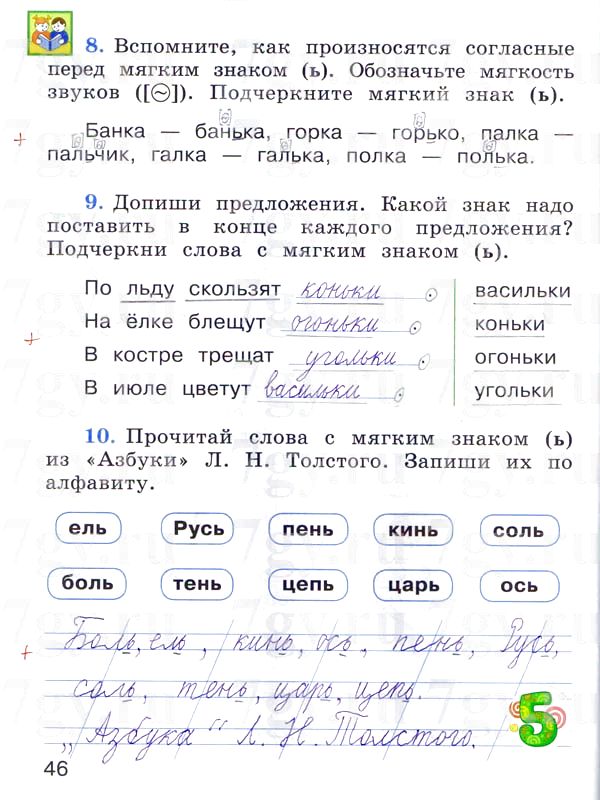 8. Вспомните, как произносятся согласные
перед мягким знаком (ь). Обозначьте мягкость
звуков ([~]). Подчеркните мягкий знак (ь).
Банка — банька, горка — горько, палка —
пальчик, галка — галька, полка — полька.
9. Допиши предложения. Какой знак надо
поставить в конце каждого предложения?
Подчеркни слова с мягким знаком (ь).
По льду скользят коньки . васильки
На ёлке блещут огоньки . коньки
В костре трещат угольки . огоньки
В июле цветут васильки . угольки
10. Прочитай слова с мягким знаком (ь)
из «Азбуки» Л. Н. Толстого. Запиши их по
алфавиту.
ель Русь пень кинь соль
боль тень цепь царь ось
Боль, ель, кинь, ось, пень, Русь,
соль, тень, царь, цепь.
„Азбука“ Л. Н. Толстого.
5
46
7gy.ru